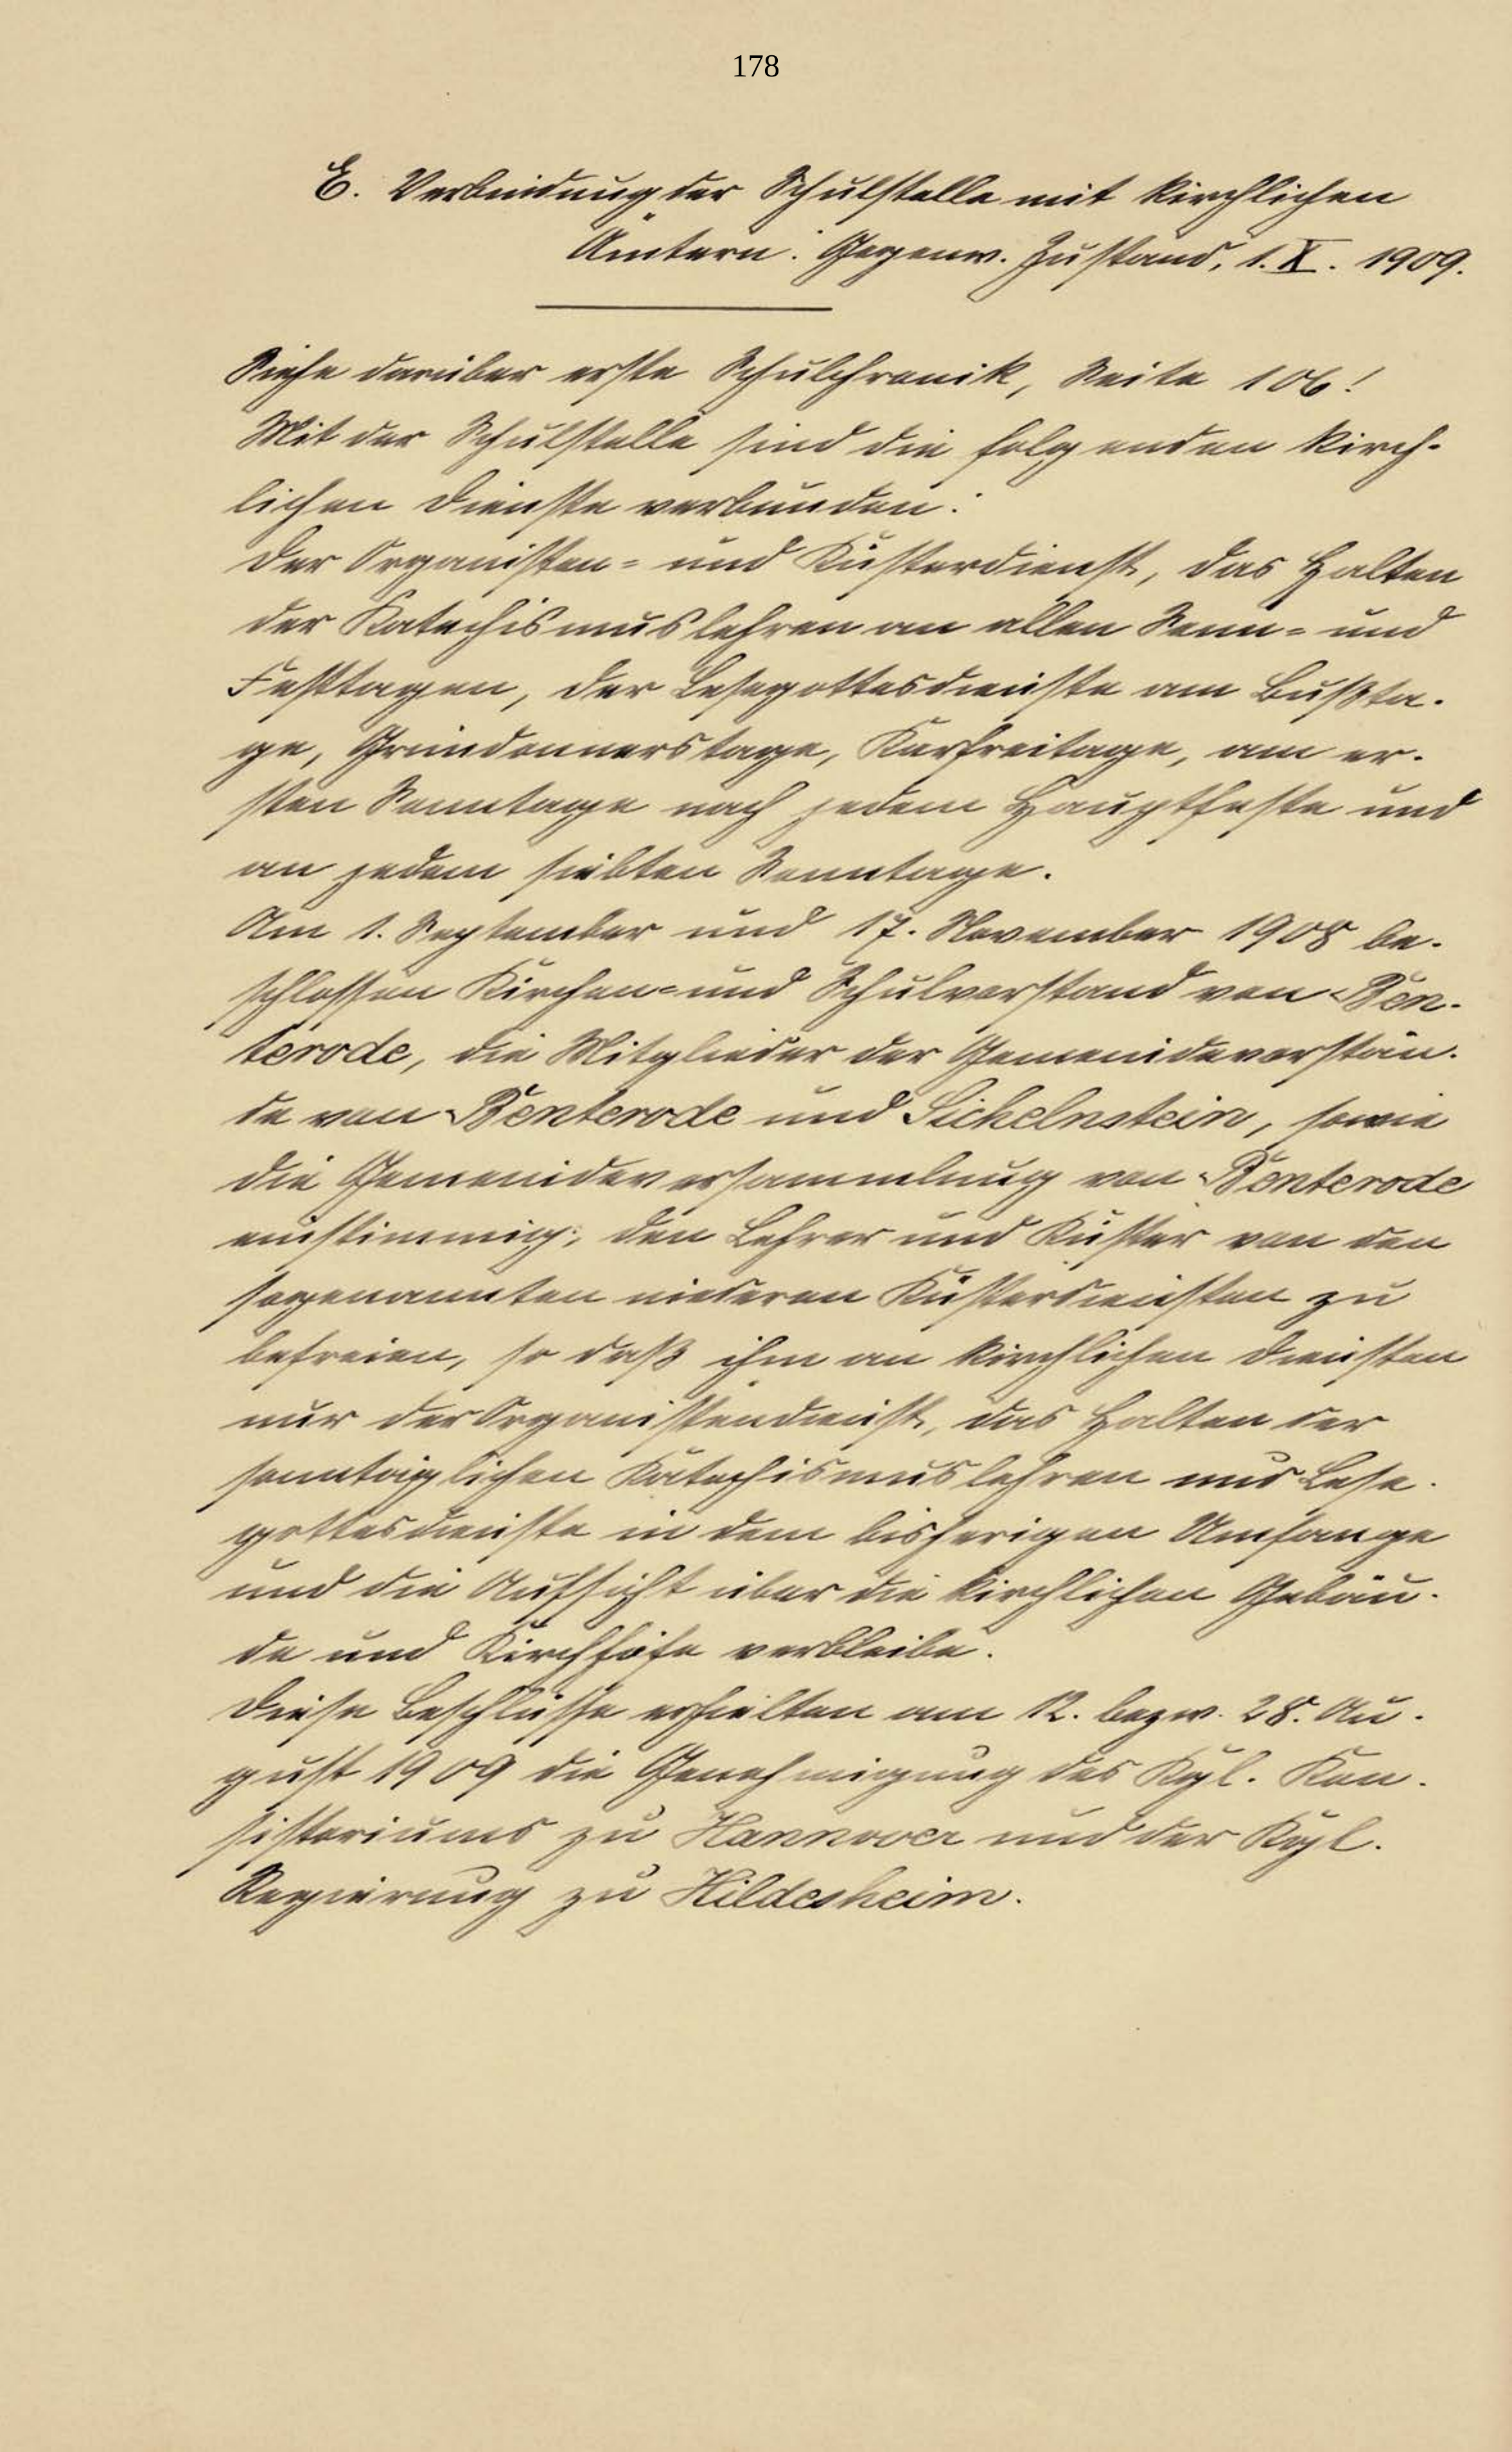 178
E. Verbindung der Schulstelle mit kirchlichen
Ämtern. Gegenw. Zustand, 1. X. 1909.
Siehe darüber erste Schulchronik, Seite 106!
Mit der Schulstelle sind die folgenden kirch-
lichen Dienste verbunden:
Der Organisten- und Küsterdienst, das Halten
der Katechismuslehren an allen Sonn- und
Festtagen, der Lesegottesdienste am Bußta-
ge, Gründonnerstage, Karfreitage, am er-
sten Sonntage nach jedem Hauptfeste und
an jedem siebten Sonntage.
Am 1. September und 17. November 1908 be-
schlossen Kirchen- und Schulvorstand von Ben-
terode, die Mitglieder der Gemeindevorstän-
de von Benterode und Sichelnstein, sowie
die Gemeindeversammlung von Benterode
einstimmig, den Lehrer und Küster von den
sogenannten niederen Küsterdiensten zu
befreien, so daß ihm an kirchlichen Diensten
nur der Organistendienst, das Halten der
sonntäglichen Katechismuslehren und Lese-
gottesdienste in dem bisherigen Umfange
und die Aufsicht über die kirchlichen Gebäu-
de und Kirchhöfe verbleibe.
Diese Beschlüsse erhielten am 12. bezw. 28. Au-
gust 1909 die Genehmigung des Kgl. Kon-
sistoriums zu Hannover und der Kgl.
Regierung zu Hildesheim.